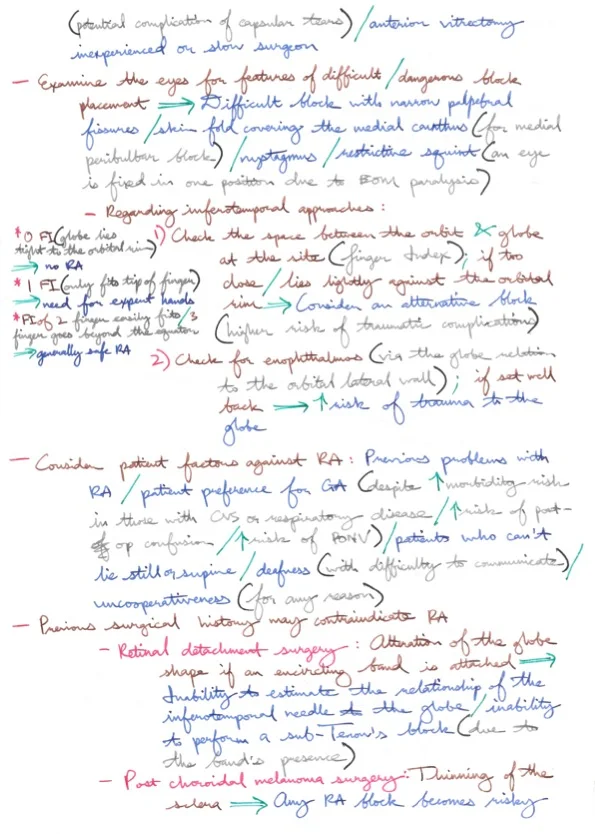 (potential complication of capsular tears) / anterior vitrectomy
inexperienced or slow surgeon
— Examine the eyes for features of difficult / dangerous block
placement → Difficult block with narrow palpebral
fissures / skin fold covering the medial canthus (for medial
peribulbar block) / nystagmus / restrictive squint (an eye
is fixed in one position due to EOM paralysis)
- Regarding inferotemporal approaches :
* 0 FI (globe lies
tight to the orbital rim)
→ no RA
* 1 FI (only fits tip of finger)
→ need for expert hands
* FI of 2 finger easily fits / 3
finger goes beyond the equator
→ generally safe RA
1) Check the space between the orbit & globe
at the site (finger Index), if too
close / lies tightly against the orbital
rim → Consider an alternative block
(higher risk of traumatic complications)
2) Check for enophthalmos (via the globe relation
to the orbital lateral wall) ; if set well
back → ↑ risk of trauma to the
globe
— Consider patient factors against RA : Previous problems with
RA / patient preference for GA (despite ↑ morbidity risk
in those with CVS or respiratory disease / ↑ risk of post-
op confusion / ↑ risk of PONV) / patients who can't
lie still or supine / deafness (with difficulty to communicate) /
uncooperativeness (for any reason)
— Previous surgical history may contraindicate RA
- Retinal detachment surgery : Alteration of the globe
shape if an encircling band is attached →
Inability to estimate the relationship of the
inferotemporal needle to the globe / inability
to perform a sub-Tenon's block (due to
the band's presence)
- Post choroidal melanoma surgery : Thinning of the
sclera → Any RA block becomes risky